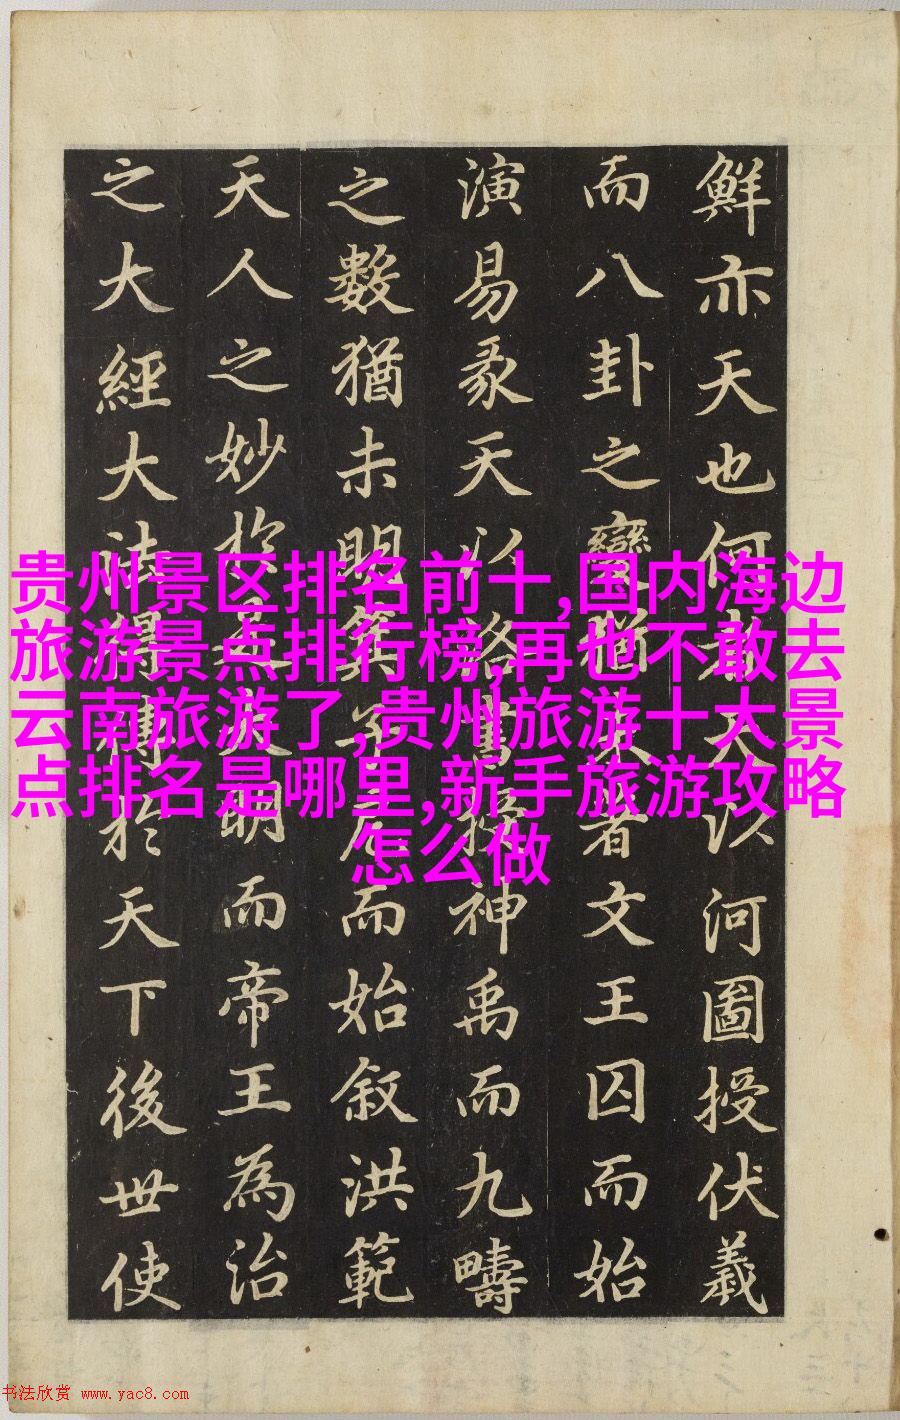 贵州景区排名前十,国内海边
旅游景点排行榜,再也不敢去
云南旅游了,贵州旅游十大景
点排名是哪里,新手旅游攻略
怎么做
鮮亦天也何者天以河圖授伏羲
而八卦之變猶未著文王囚而始
演易彖天以洛書授神禹而九疇
之數猶未明箕子而始叙洪範
天人之妙於是明而帝王為治
之大經大法得傳於天下後世使
书法欣赏 www.yac8.com